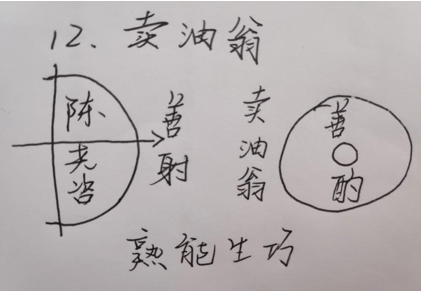 12、卖油翁
陈尧咨
善射
卖油翁
善酌
熟能生巧